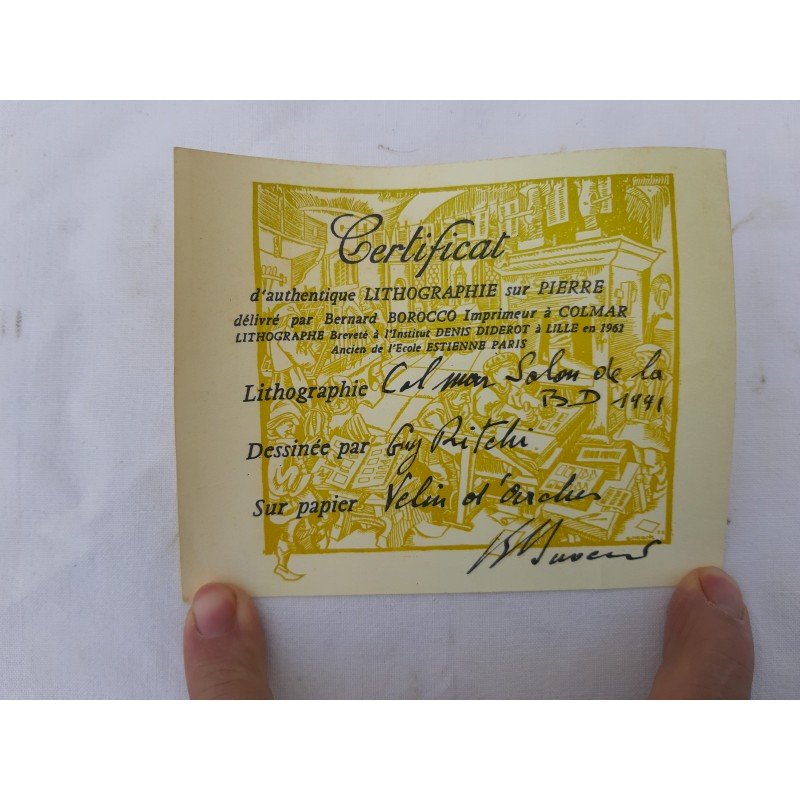 Certificat
d'authentique LITHOGRAPHIE sur PIERRE
délivré par Bernard BOROCCO Imprimeur à COLMAR
LITHOGRAPHE Breveté à l'Institut DENIS DIDEROT à LILLE en 1962
Ancien de l'Ecole ESTIENNE PARIS
Lithographie Colmar Salon de la
BD 1991
Dessinée par Guy Ritchi
Sur papier Velin d'arches